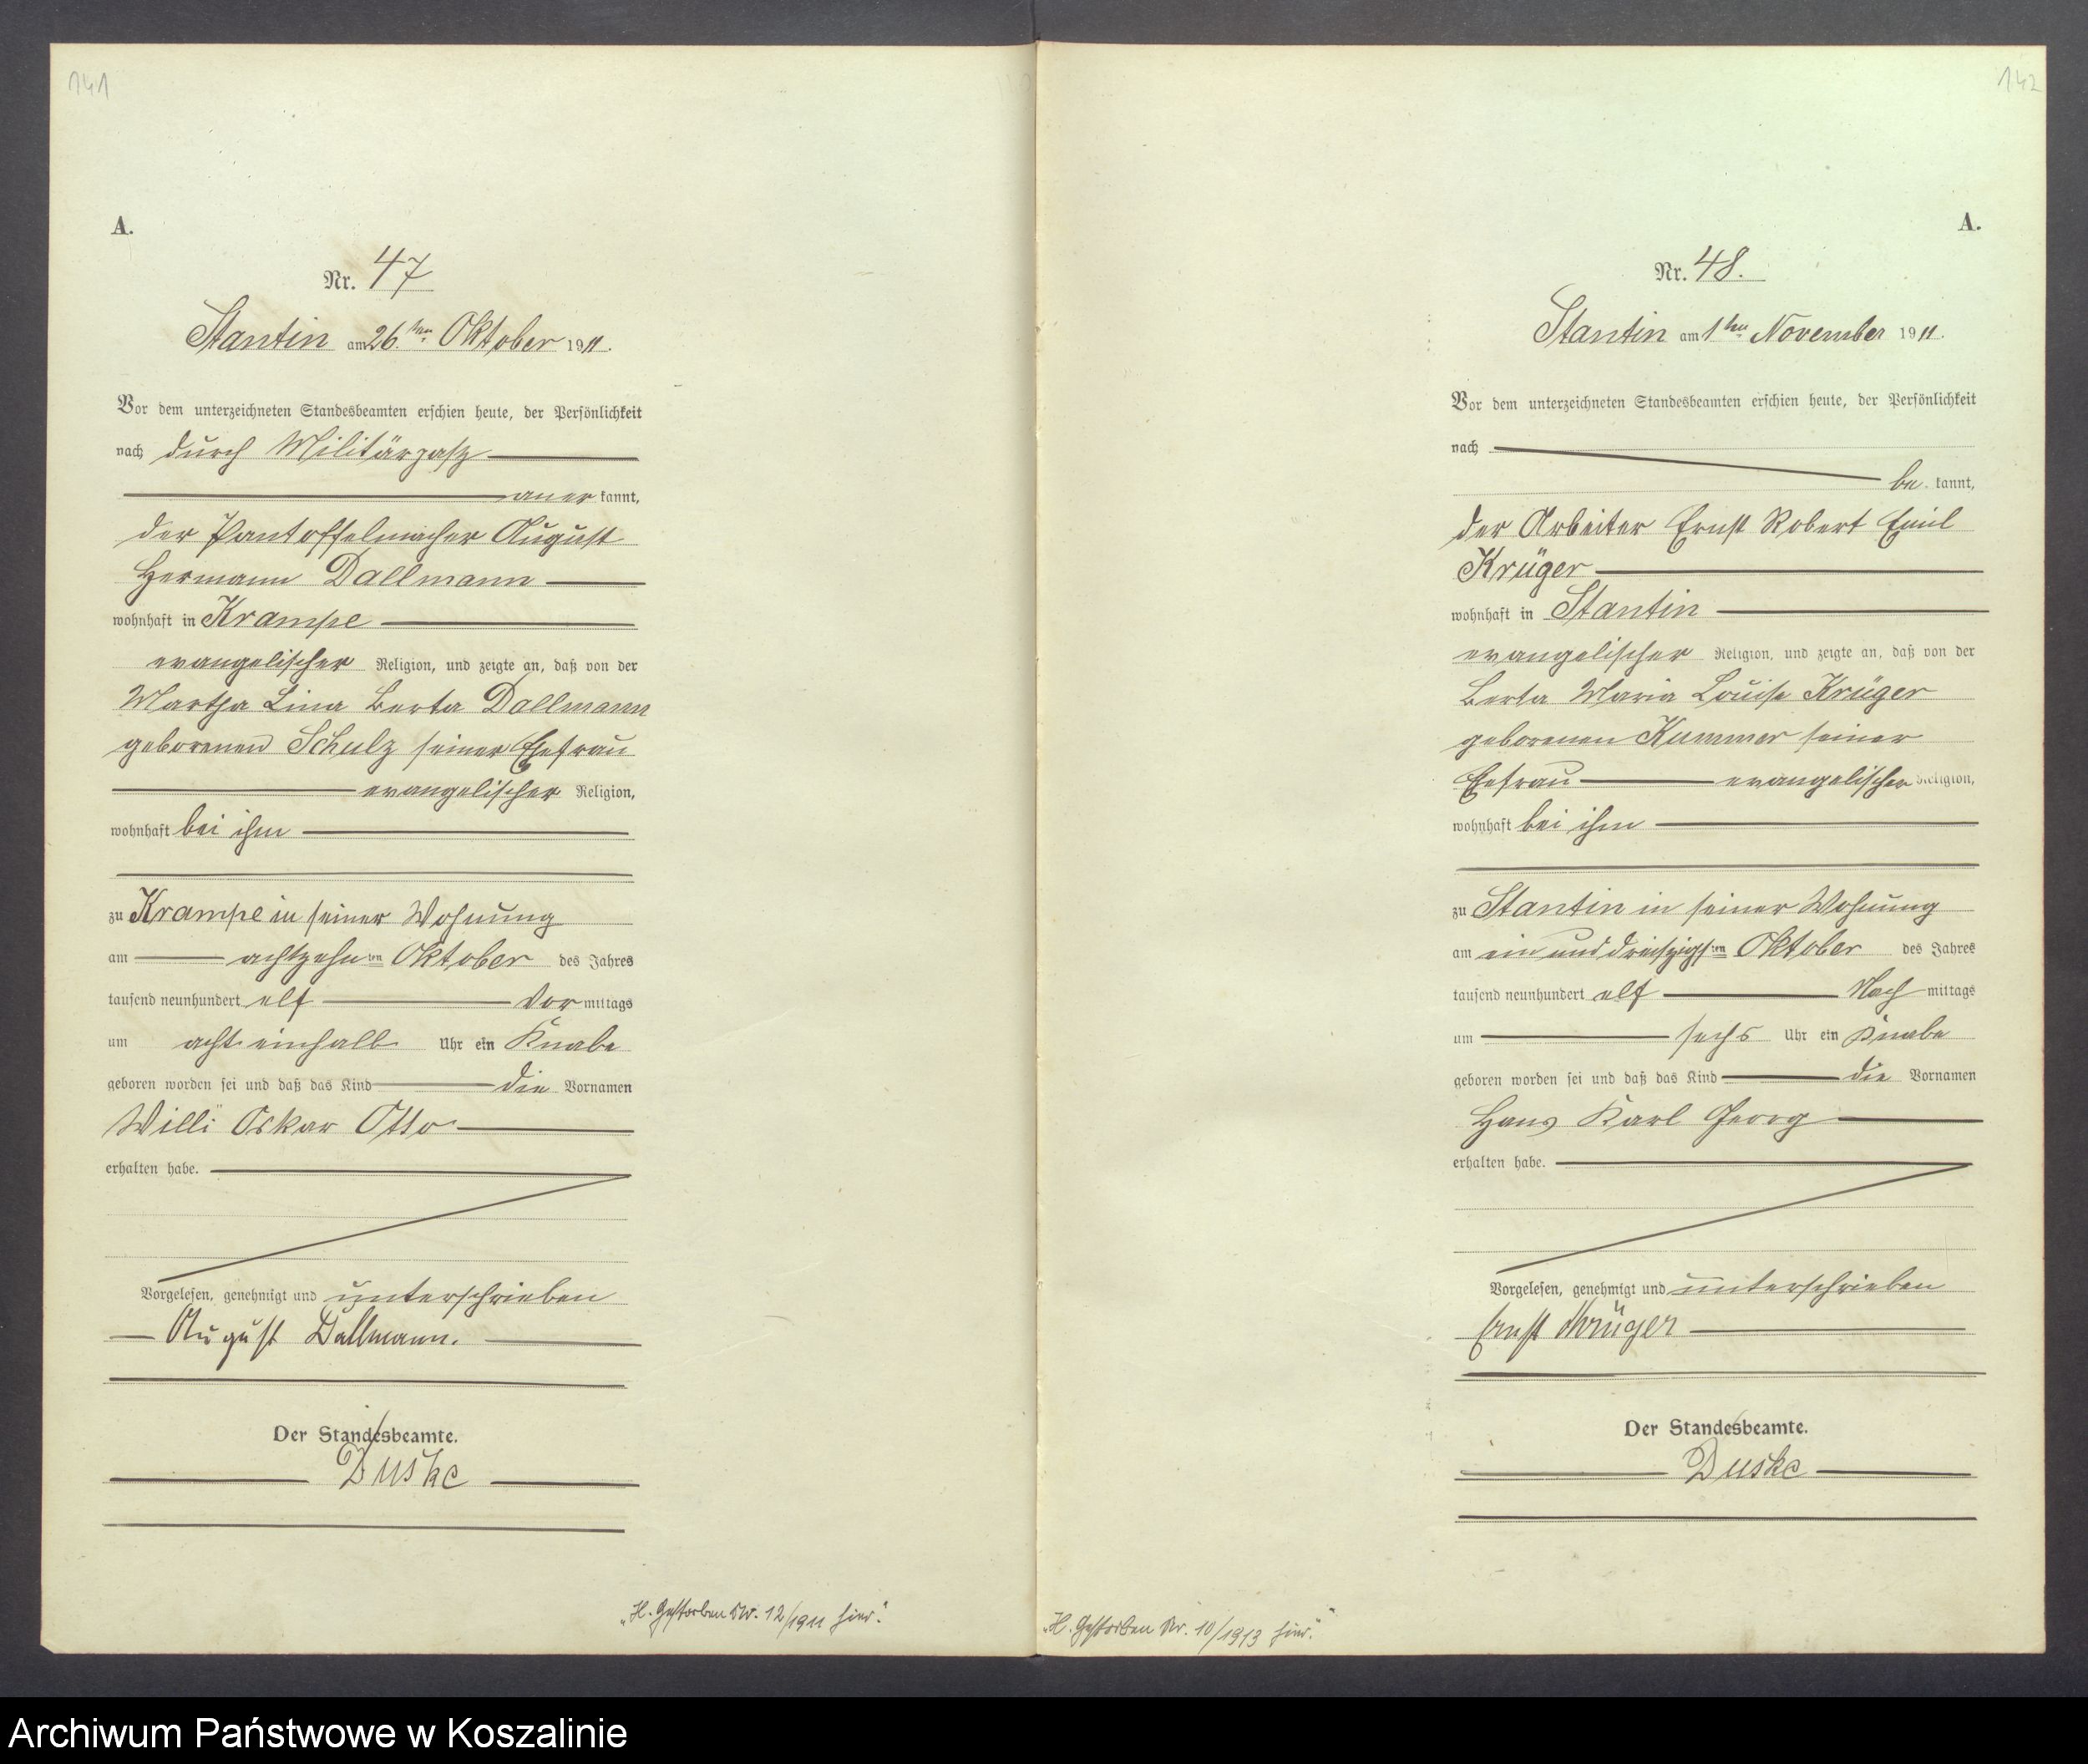 141
A.
Nr. 47
Stantin am 26.ten Oktober 1911.
Vor dem unterzeichneten Standesbeamten erschien heute, der Persönlichkeit
nach durch Militärpaß
aner kannt,
der Pantoffelmacher August
Hermann Dallmann
wohnhaft in Krampe
evangelischer Religion, und zeigte an, daß von der
Martha Lina Berta Dallmann
geborenen Schulz seiner Ehefrau
evangelischer Religion,
wohnhaft bei ihm
zu Krampe in seiner Wohnung
am achtzehnten Oktober des Jahres
tausend neunhundert elf Vor mittags
um acht einhalb Uhr ein Knabe
geboren worden sei und daß das Kind die Vornamen
Willi Oskar Otto
erhalten habe.
Vorgelesen, genehmigt und unterschrieben
August Dallmann.
Der Standesbeamte.
Duske
„H. Gestorben Nr. 12/1911 hier."
142
A.
Nr. 48.
Stantin am 1ten November 1911.
Vor dem unterzeichneten Standesbeamten erschien heute, der Persönlichkeit
nach
be kannt,
der Arbeiter Ernst Robert Emil
Krüger
wohnhaft in Stantin
evangelischer Religion, und zeigte an, daß von der
Berta Maria Louise Krüger
geborenen Kummer seiner
Ehefrau evangelischer Religion,
wohnhaft bei ihm
zu Stantin in seiner Wohnung
am ein und dreißigsten Oktober des Jahres
tausend neunhundert elf Nach mittags
um sechs Uhr ein Knabe
geboren worden sei und daß das Kind die Vornamen
Hans Karl Georg
erhalten habe.
Vorgelesen, genehmigt und unterschrieben
Ernst Krüger
Der Standesbeamte.
Duske
„H. Gestorben Nr. 10/1913 hier."
Archiwum Państwowe w Koszalinie